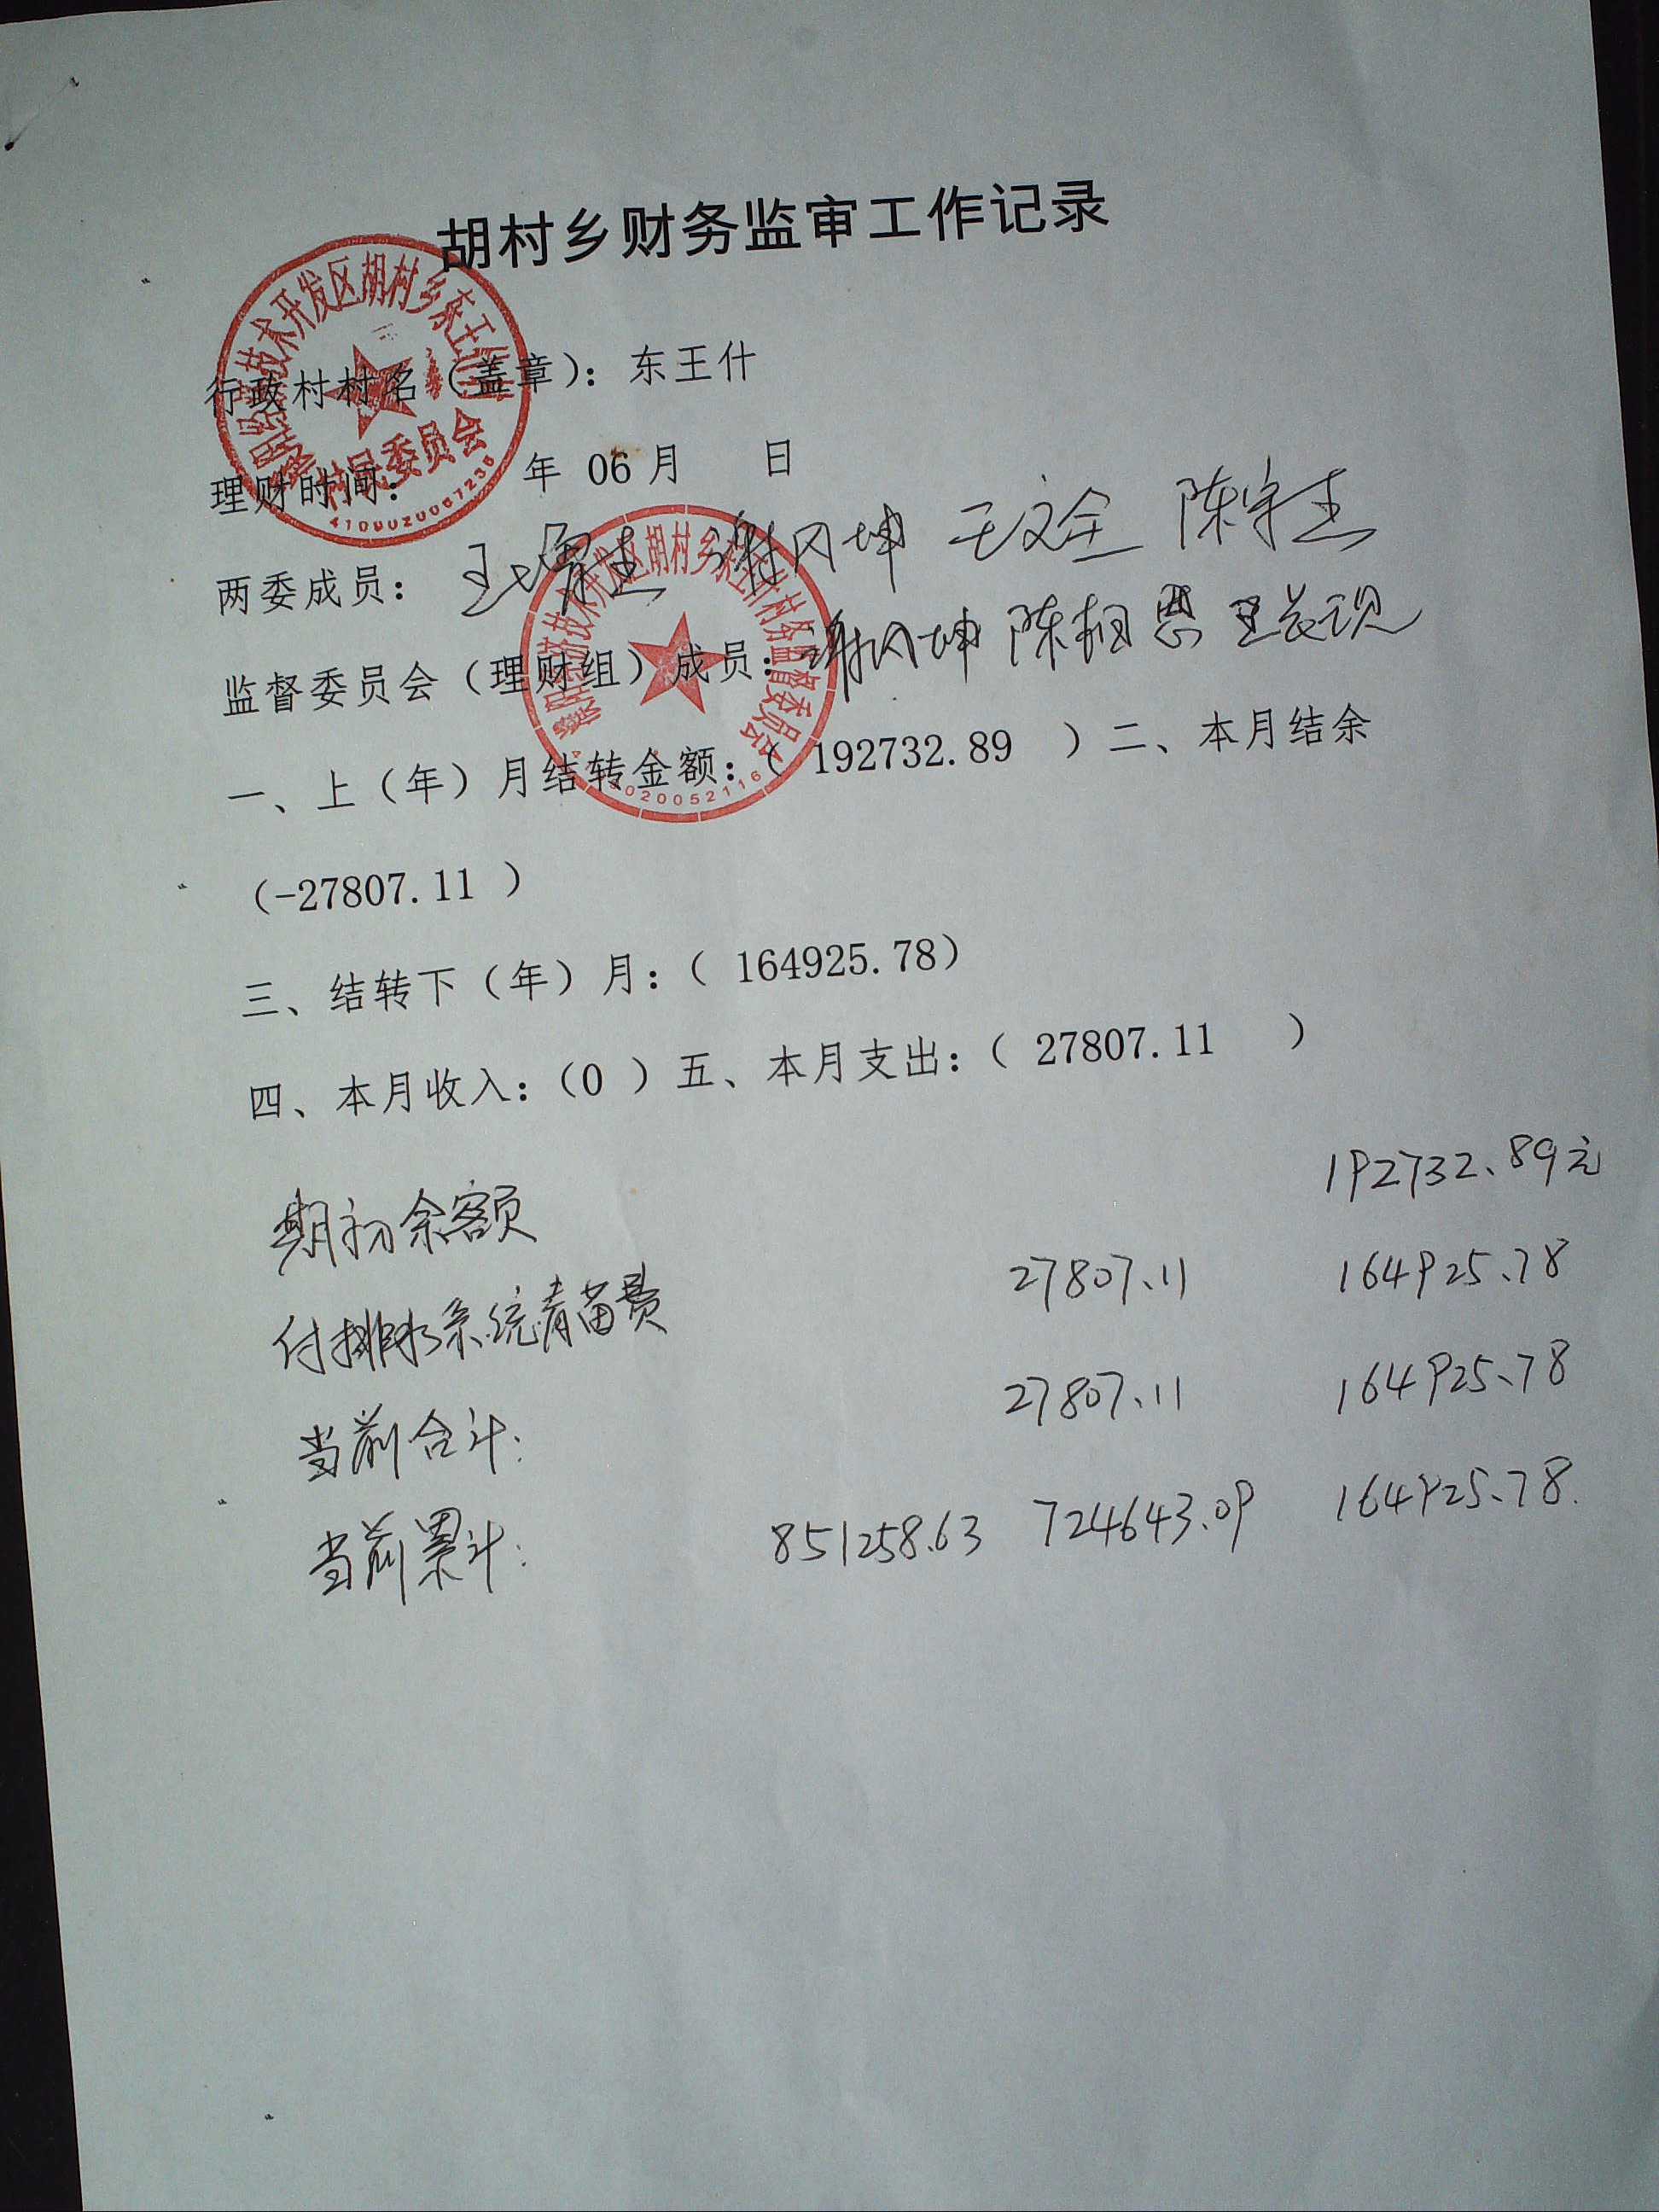 胡村乡财务监审工作记录
技术开发区胡村乡东王什
村民委员会
4109020067236
行政村村名（盖章）：东王什
理财时间：　　年 06 月　　日
两委成员： 谢冈坤 王文全
技术开发区胡村乡东王什村村务监督委员会
监督委员会（理财组）成员：谢冈坤 陈相恩
一、上（年）月结转金额：（ 192732.89 ）二、本月结余
（-27807.11 ）
三、结转下（年）月：（ 164925.78）
四、本月收入：（0 ）五、本月支出：（ 27807.11 ）
期初余额 192732.89元
付排水系统青苗费 27807.11 164925.78
当前合计： 27807.11 164925.78
当前累计： 851258.63 724643.09 164925.78